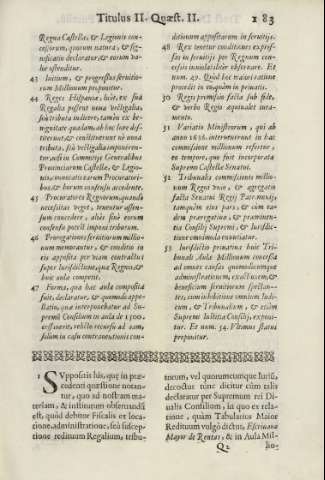 Titulus II. Quæst. II. 183
Regna Castellæ, & Legionis con-
cessorum, quorum natura, & sig-
nificatio declaratur, & eorum va-
lor ostenditur.
43 Initium, & progressus servitio-
rum Millionum proponitur.
44 Reges Hispaniæ, licèt, ex sua
Regalia possent nova vectigalia,
seu tributa inducere, tamèn ex be-
nignitate qualamab hoc iure des-
titerunt, & constituerunt nè nova
tributa, seù vectigalia imponeren-
tur, nisi in Commitijs Generalibus
Provinciarum Castellæ, & Legio-
nis, convocatis earum Procuratori-
bus, & horum consensu accedente.
45 Procuratores Regnorum, quando
necessitas veget, tenentur assen-
sum concedere, aliàs sinè eorum
consensu potest imponi tributum.
46 Prorogationes servitiorum millio-
num memorantur, & conditio in
eis apposita per viam contractus
super Iurisdictione, quæ Regno, &
huic aulæ competit.
47 Forma, qua hæc aula composita
fuit, declaratur, & quomodò appe-
llatio, quæ interponebatur ad Su-
premũ Consilium in aula de 1500.
cessaverit, relicto recursu ad eam,
solum in casu contraventionis con-
ditionum appositarum in servitijs.
48 Rex tenetur conditiones expres-
sas in servitijs per Regnum con-
cessis inviolabilitèr observare. Et
num. 49. Quòd hoc maiori ratione
procedit in eo, quàm in privatis.
50 Regis promissio facta sub fide,
& verbo Regis æquivalet iura-
mento.
51 Variatio Ministrorum, qui ab
anno 1626. intervenerunt in hac
commissione millionum refertur,
ex tempore, quo fuit incorporata
Supremo Castellæ Senatui.
52 Tribunalis commissionis millio-
num Regno unio, & aggregatio
facta Senatui Regij Patrimonij,
tamquàm eius pars, & cum ea-
dem prærogativa, & præeminen-
tia Consilij Supremi, & Iurisdic-
tione omnimodo enuntiatur.
53 Iurisdictio privativa huic Tri-
bunali Aulæ Millionum concessa
ad omnes causas quomodocumque
administrationem, exactionem, &
beneficium servitiorum spectan-
tes, cum inhibitione omnium Iudi-
cum, & Tribunalium, & etiàm
Supremi Iustitiæ Consilij, exponi-
tur. Et num. 54. Ultimus status
proponitur.
1 Suppositis his, quæ in præ-
cedenti quæstione notan-
tur, quo ad nostram ma-
teriam, & institutum observandũ
est, quòd debitor Fiscalis ex loca-
tione, administratione, seù suscep-
tione redituum Regalium, tribu-
torum, vel quorumcumque Iuriũ,
decoctus tunc dicitur cùm talis
declaratur per Supremum rei Di-
tialis Consilium, in quo ex rela-
tione, quàm Tabularius Maior
Redituum vulgò dictus, Escrivano
Mayor de Rentas, & in Aula Mil-
Q2 lio-